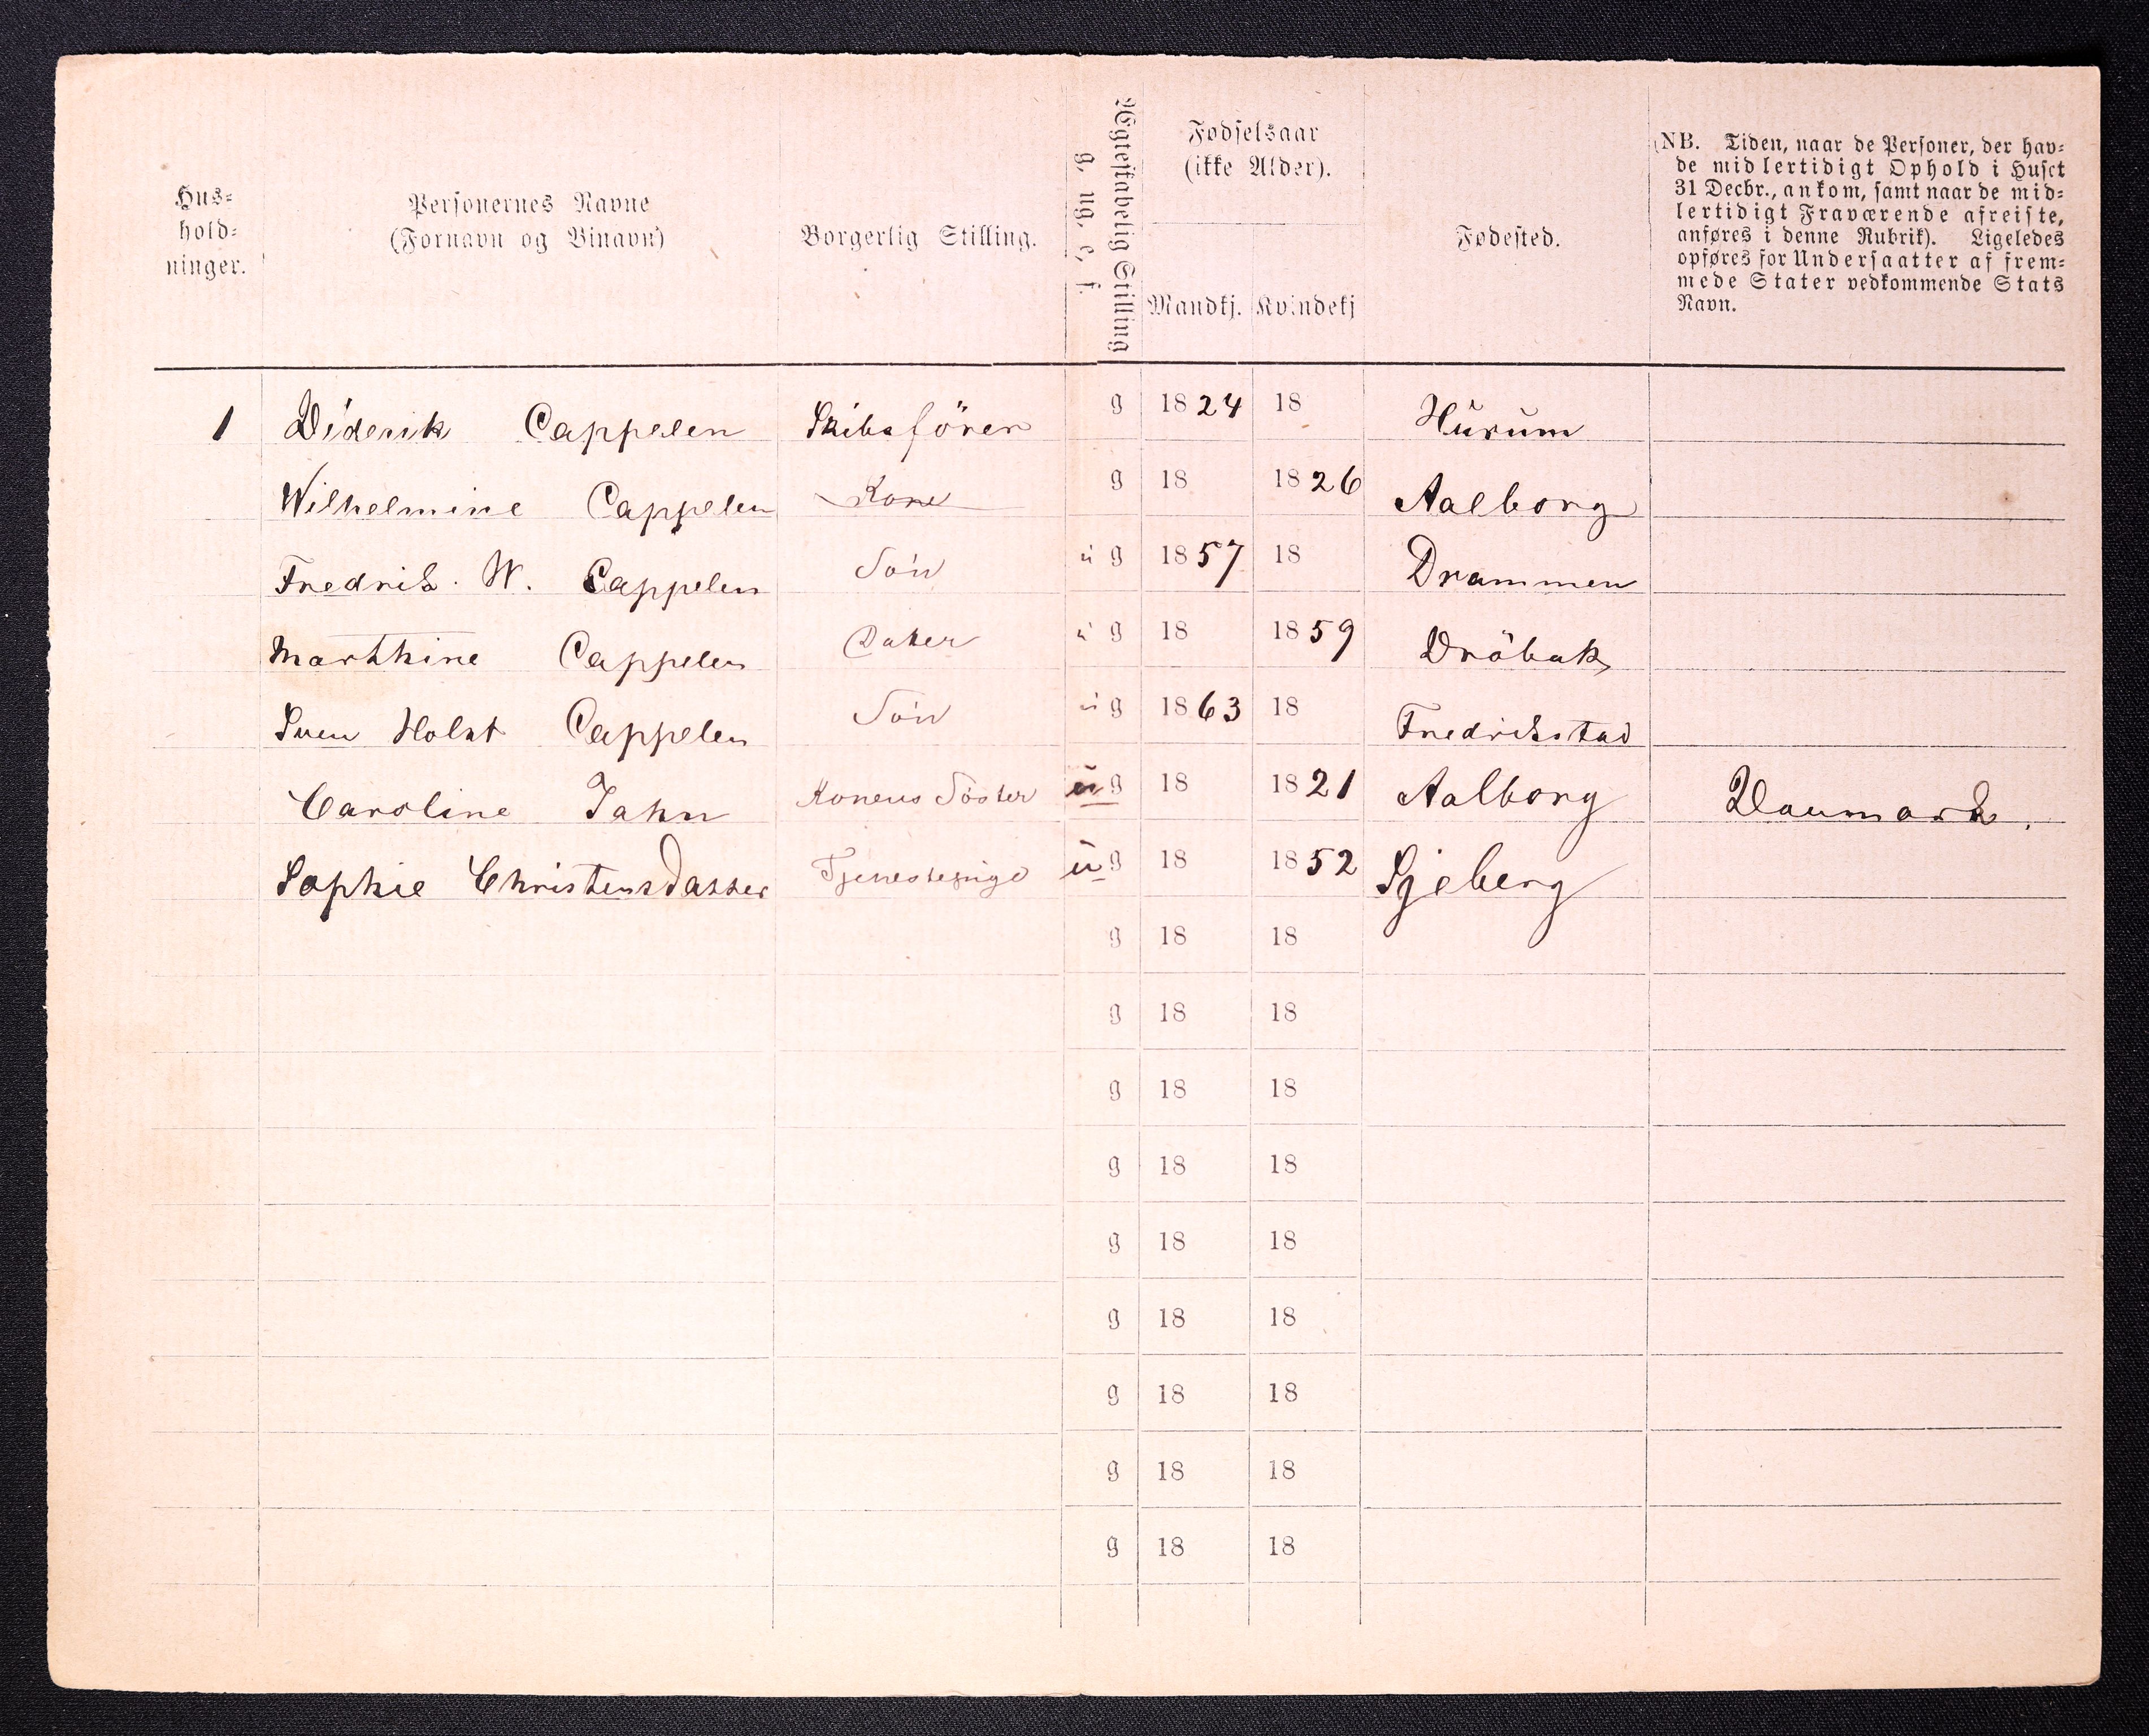 Hus-
hold-
ninger.
Personernes Navne
(Fornavn og Binavn)
Borgerlig Stilling.
Ægteskabelig Stilling
g. ug. e. f.
Fødselsaar
(ikke Alder).
Mandkj. Kvindekj
Fødested.
(NB. Tiden, naar de Personer, der hav-
de midlertidigt Ophold i Huset
31 Decbr., ankom, samt naar de mid-
lertidigt Fraværende afreiste,
anføres i denne Rubrik). Ligeledes
opføres for Undersaatter af frem-
mede Stater vedkommende Stats
Navn.
1 Diderik Cappelen Skibsförer g 1824 18 Hurum
Wilhelmine Cappelen Kone g 18 1826 Aalborg
Fredrik. W. Cappelen Sön ug 1857 18 Drammen
Marthine Cappelen Dater ug 18 1859 Dröbak
Sven Holst Cappelen Sön ug 1863 18 Fredriksstad
Caroline Jahn Konens Söster ug 18 1821 Aalborg Danmark.
Sophie Christensdatter Tjenestepige ug 18 1852 Sjeberg
g 18 18
g 18 18
g 18 18
g 18 18
g 18 18
g 18 18
g 18 18
g 18 18
g 18 18